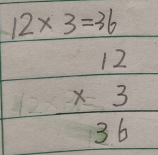 12×3=36
12
× 3
36